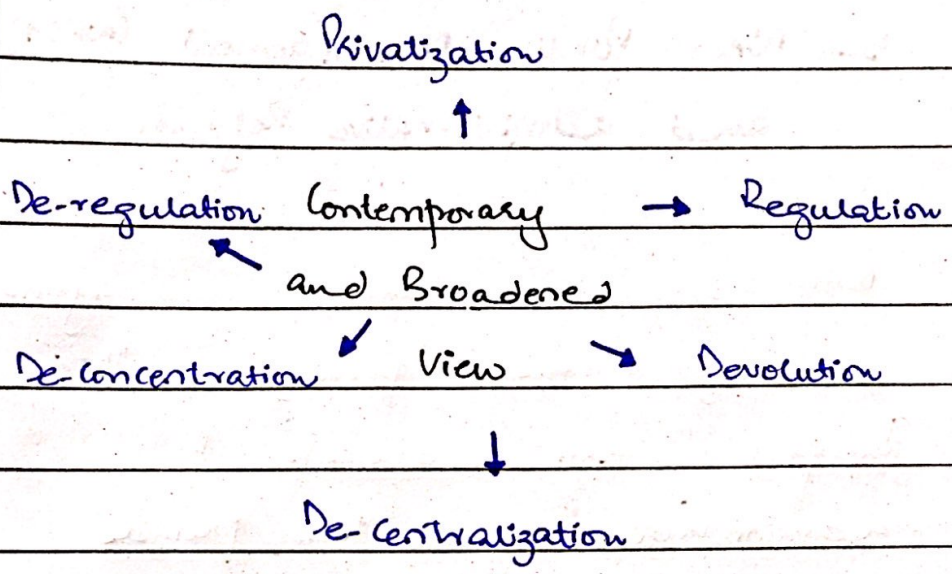 Privatization
De-regulation Contemporary Regulation
and Broadened
De-Concentration View Devolution
De-Centralization